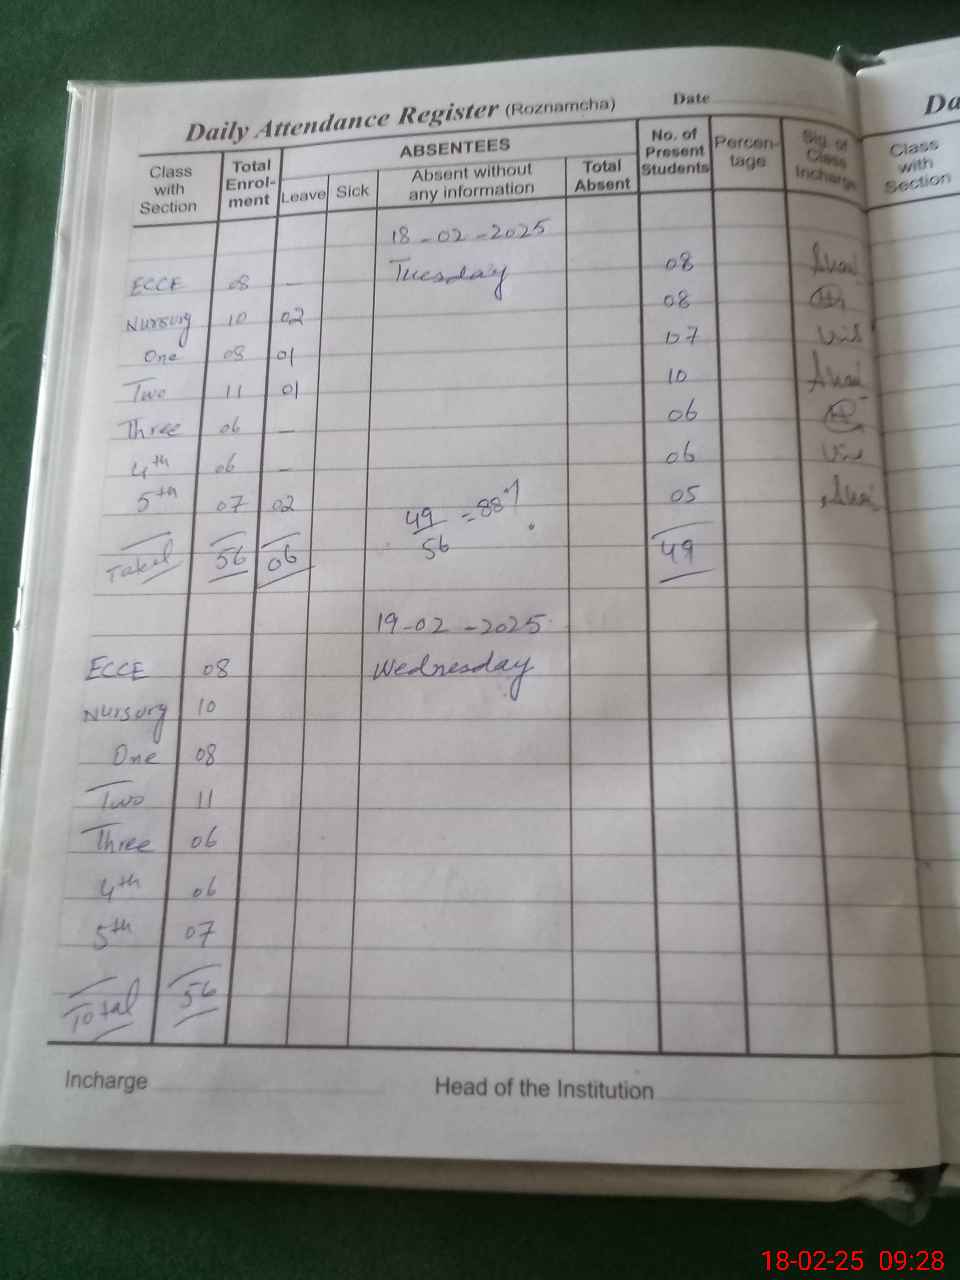 Daily Attendance Register (Roznamcha) Date
Class with Section Total Enrol-ment ABSENTEES Leave Sick Absent without any information Total Absent No. of Present Students Percen-tage Sig. of Class Incharge
18-02-2025
ECCE 08 - Tuesday 08
Nursury 10 02 08
One 08 01 07
Two 11 01 10
Three 06 - 06
4th 06 - 06
5th 07 02 49/56 = 88% 05
Total 56 06 49
19-02-2025
ECCE 08 Wednesday
Nursury 10
One 08
Two 11
Three 06
4th 06
5th 07
Total 56
Incharge Head of the Institution
Da
Class with Section
18-02-25 09:28